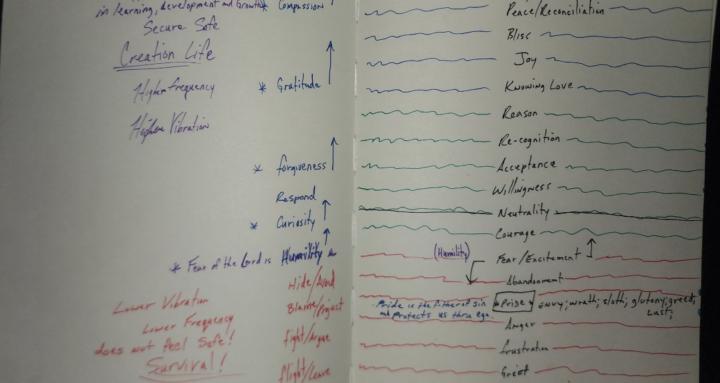 in learning, development and Growth * Compassion
Secure Safe
Creation Life
Higher frequency
* Gratitude
Higher Vibration
* forgiveness
Respond
* Curiosity
* Fear of the Lord is Humility
Hide/Avoid
Lower Vibration
Blame/Project
Lower Frequency
does not feel Safe!
fight/Argue
Survival!
flight/Leave
Peace/Reconciliation
Bliss
Joy
Knowing Love
Reason
Re-cognition
Acceptance
Willingness
Neutrality
Courage
(Humility)
Fear/Excitement
Abandonment
Pride is the father of sin
and protects us thru ego.
Pride envy; wrath; sloth; glutony; greed;
Lust;
Anger
frustration
Grief